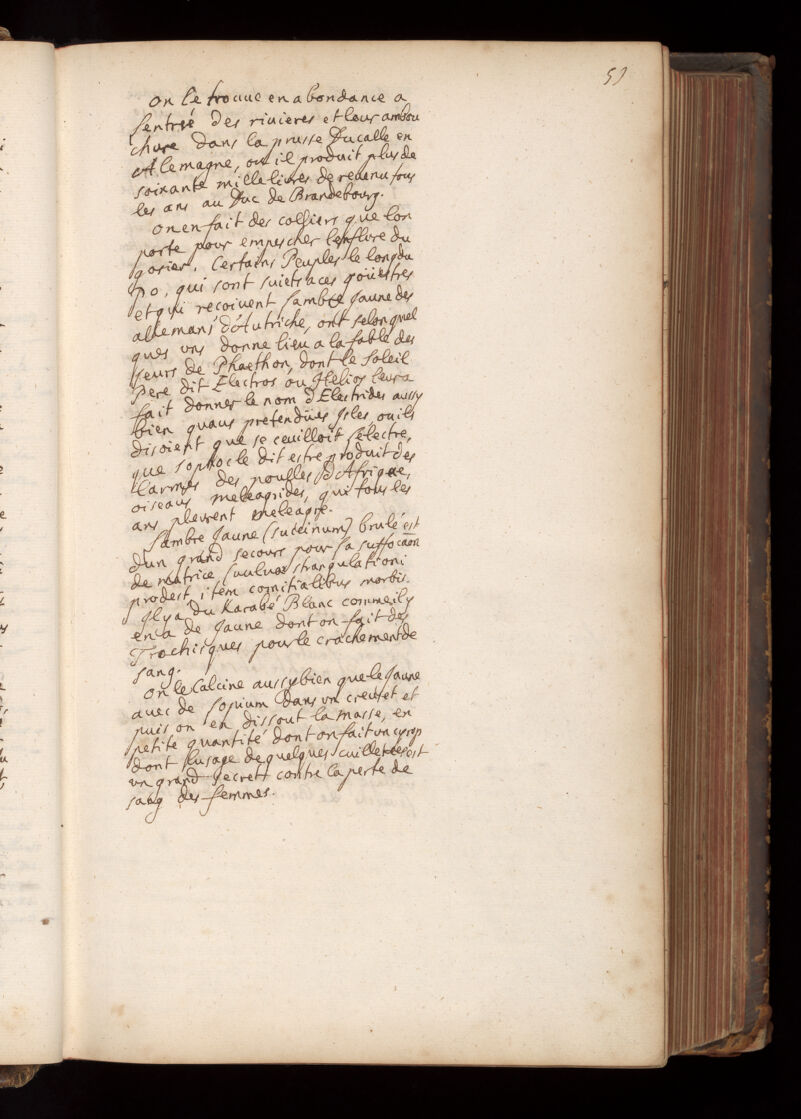 59
on le trouue en abondance a
lentreé des riuieres et leur ambou
chure dans la prusse Ducalle en
Alemagne, ou il produit plus de
soixante mille liures de reuenu tous
les ans au Duc de Brandebourg.
on en fait des colliers que lon
porte pour empescher lenflure du
gosier. Certains Peuples le long du
Po, qui sont suiets a ces goüestres
et qui recoiuent lambre Jaune des
allemans d'Autriche, ont selon quel
ques vns donne lieu a la fable des
seurs de Phaethon, dont le Soleil
Pere dit Electros ou Helios leur a
fait donner le nom d'Electrides aussy
bien quaux pretendües Isles ou ils
disoient que se ceuilloit lelectre,
que sophocle dit estre produit des
larmes des poulles D'Afrique,
oiseaux meleagrides, qui tous les
ans pleurent meleagre.
lambre Jaune (succinum) brulé est
dun grand secours pour la suffocaon
de matrice, (vuluae strangulationi
prodest, item comitialibus morbis.
Il y a du Karabé Blanc comme il y
en a de Jaune dont on fait des
Trochisques pour le crachement de
sang.
on le Calcine aussy bien que le Jaune
auec de lopium dans vn creuset et
puis on en dissout la masse, en
petite quantité dont on fait vn cyrop
dont lusage de quelques cuillerées est
vn grand secrett contre la perte de
sang des femmes.